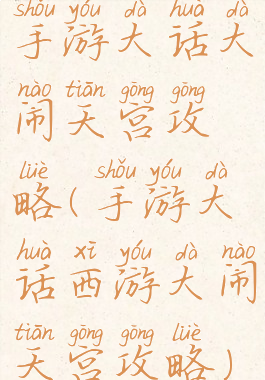 shǒu yóu dà huà dà
手游大话大
nào tiān gōng gōng
闹天宫攻
lüè shǒu yóu dà
略(手游大
huà xī yóu dà nào
话西游大闹
tiān gōng gōng lüè
天宫攻略)